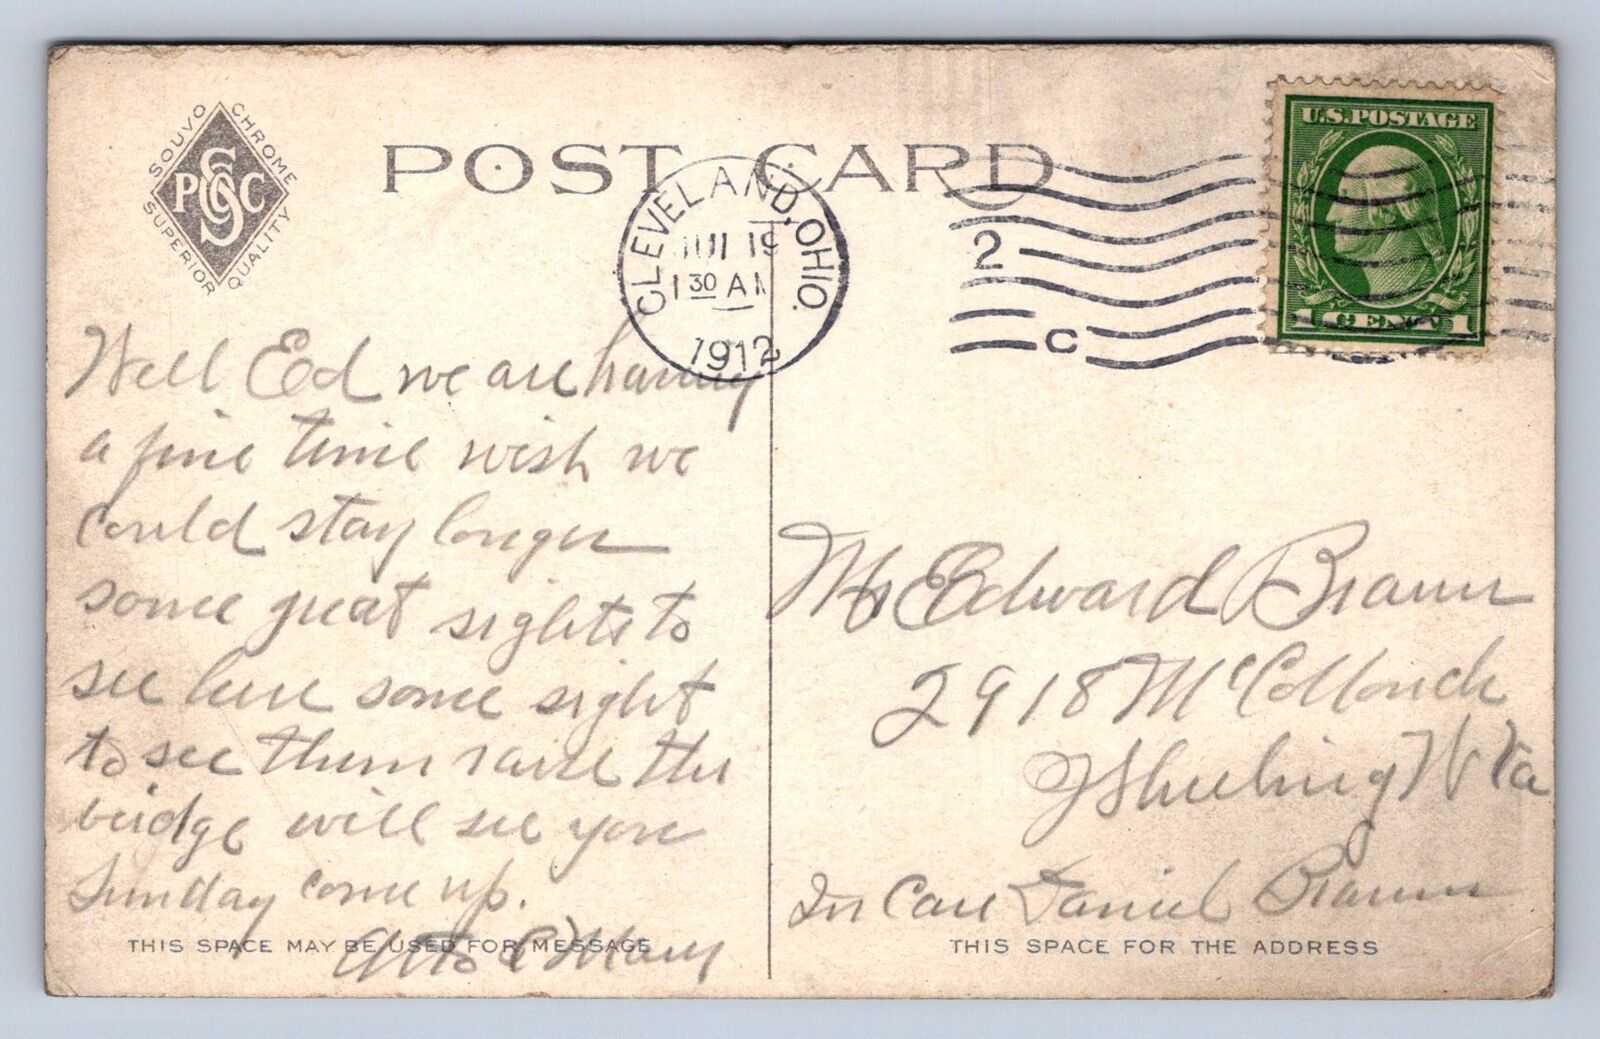 SOUVO CHROME
P S C G C
SUPERIOR QUALITY
POST CARD
CLEVELAND, OHIO.
JUL 19
1 30 AM
1912
2
C
U.S. POSTAGE
1 CENT 1
Well Ed we are having
a fine time wish we
could stay longer
some great sights to
see here some sight
to see them raise the
bridge will see you
Sunday come up.
Otto & Mary
Mr Edward Braun
2918 McCollouch
Wheeling W Va
In Care Daniel Braun
THIS SPACE MAY BE USED FOR MESSAGE
THIS SPACE FOR THE ADDRESS